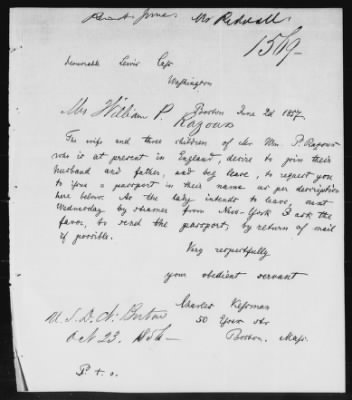 1569
Honorable Lewis Cass
Washington
Mrs William P.
Boston June 2d 1857
The wife and three children of Mr Wm. P.
who is at present in England, desire to join their
husband and father, and beg leave, to request you
to issue a passport in their name as per description
here below. As the lady intends to leave, next
Wednesday by steamer from New-York I ask the
favor, to send the passport, by return of mail
if possible.
Very respectfully
your obedient servant
Charles
U.S.D.A. Boston
Oct 23. 1856 –
50 str
Boston, Mass.
P. t. o.